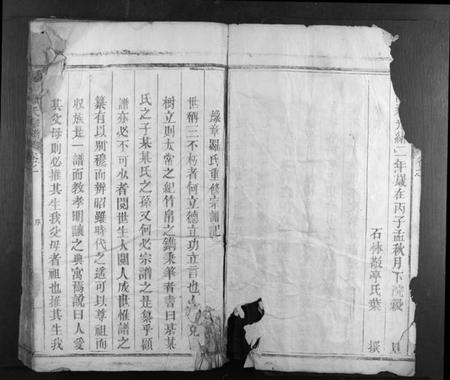 二年歲在丙子孟秋月下浣穀
石林敬亭氏葉
撰
豫章羅氏重修宗譜記
世稱三不朽者何立德立功立言也
克
樹立則太常之紀竹帛之鐫秉筆者書曰某某
氏之子某某氏之孫又何必宗譜之是纂乎顧
譜亦必不可少者閱世生人閱人成世惟譜之
纂有以別禮而辨昭穆時代之遙可以尊祖而
收族是一譜而教孝明讓之典寓焉說曰人愛
其父母則必推其生我父母者祖也推其生我